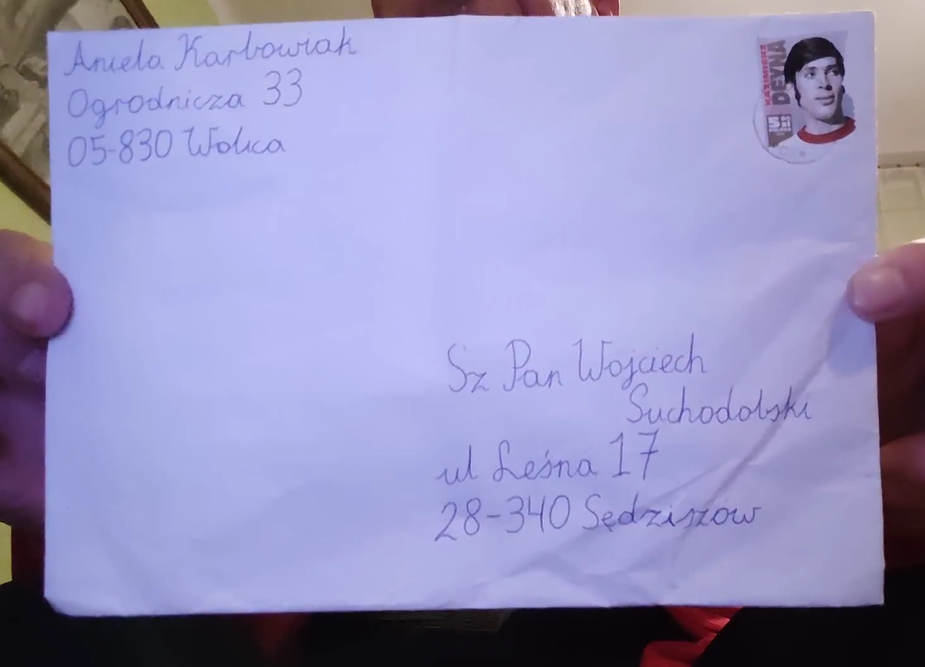 Aniela Karbowiak
Ogrodnicza 33
05-830 Wolica
KAZIMIERZ
DEYNA
5
Sz Pan Wojciech
Suchodolski
ul Leśna 17
28-340 Sędziszów